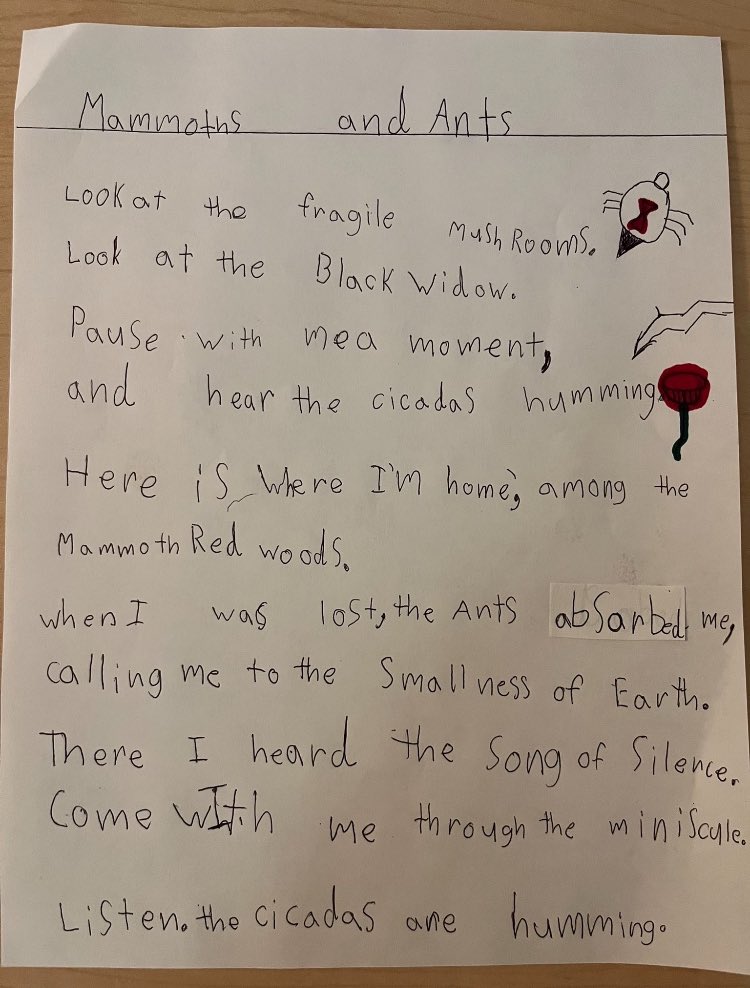 Mammoths and Ants
Look at the fragile MushRooms.
Look at the Black Widow.
Pause with me a moment,
and hear the cicadas humming.
Here is where I'm home, among the
Mammoth Red woods.
when I was lost, the Ants absarbed me,
calling me to the Smallness of Earth.
There I heard the Song of Silence.
Come wIth me through the miniscule.
Listen. the cicadas are humming.